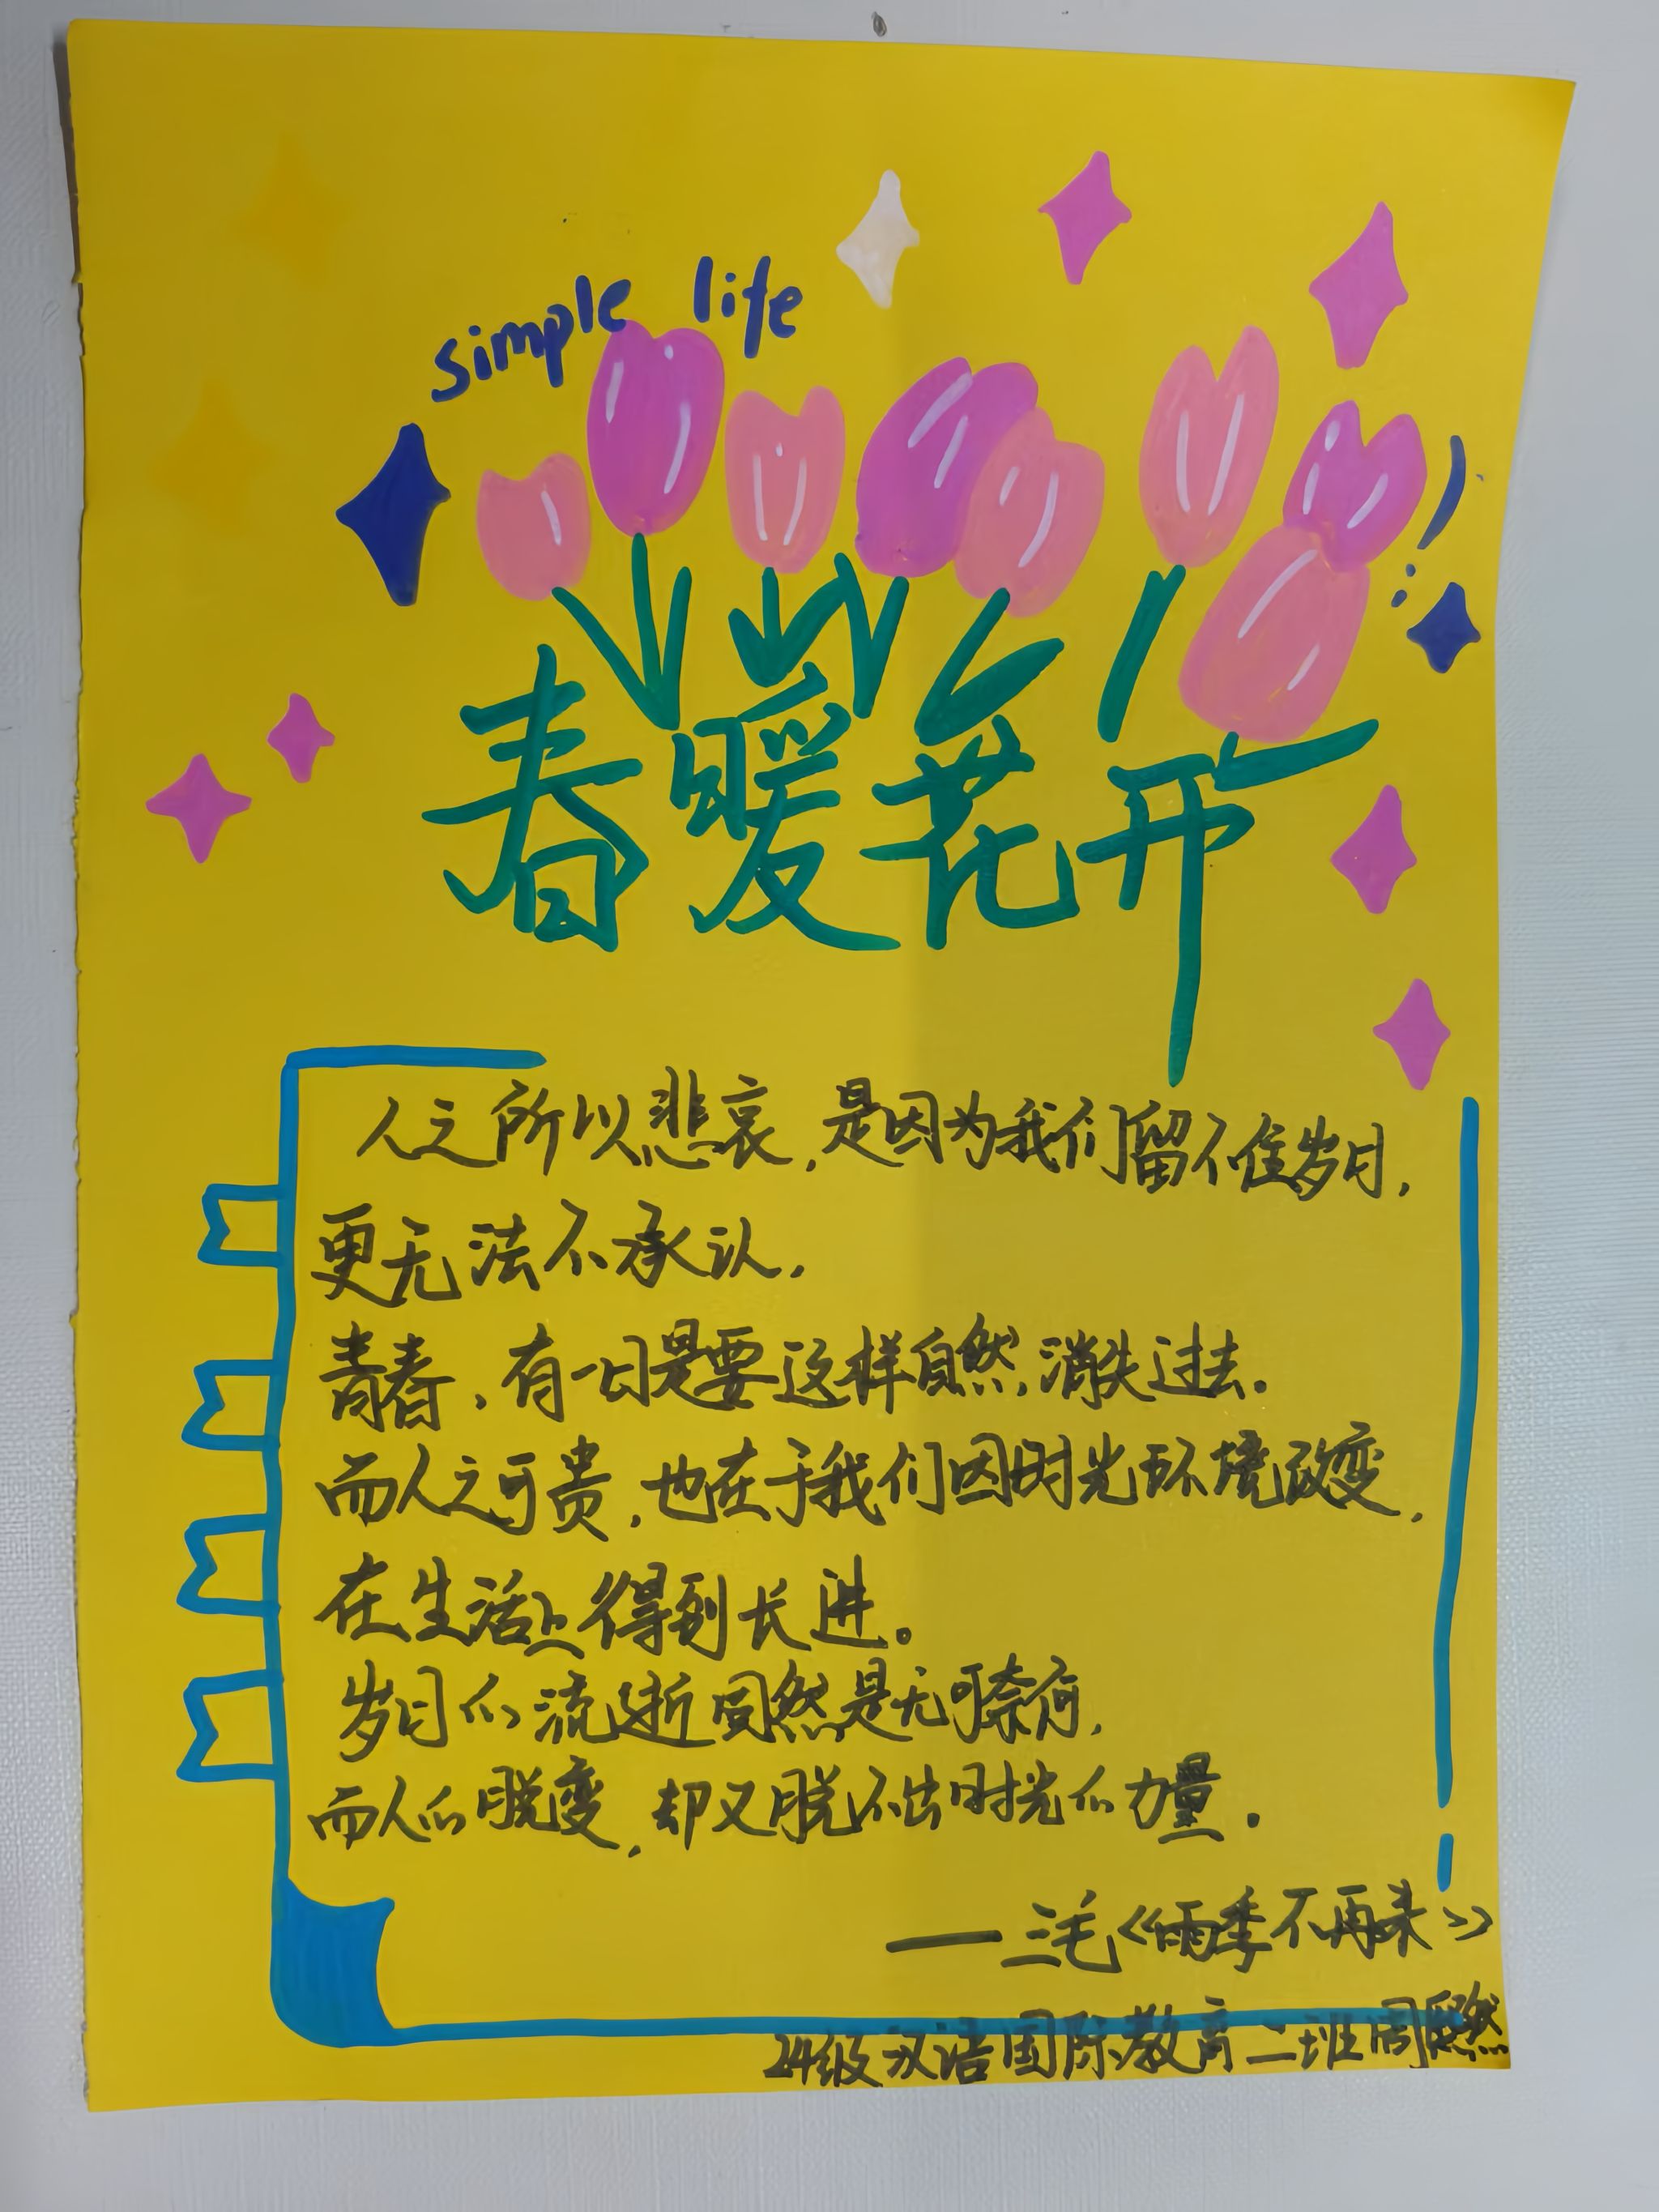 simple life
春暖花开
人之所以悲哀,是因为我们留不住岁月,
更无法不承认,
青春,有一日是要这样自然,消失过去.
而人之可贵,也在于我们因时光环境改变,
在生活上得到长进。
岁月的流逝固然是无可奈何,
而人的脱变,却又脱不出时光的力量.
——三毛《雨季不再来》
24级汉语国际教育二班周熙然